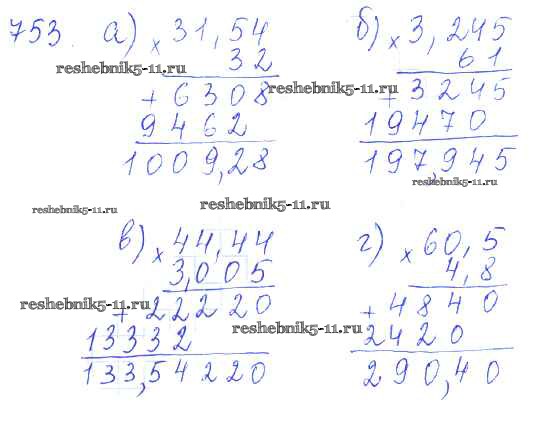 753. а) × 31,54
32
reshebnik5-11.ru
+ 6308
9462
1009,28
б) × 3,245
61
reshebnik5-11.ru
+ 3245
19470
197,945
reshebnik5-11.ru
reshebnik5-11.ru
reshebnik5-11.ru
в) × 44,44
3,005
reshebnik5-11.ru
+ 22220
13332
133,54220
г) × 60,5
4,8
reshebnik5-11.ru
+ 4840
2420
290,40